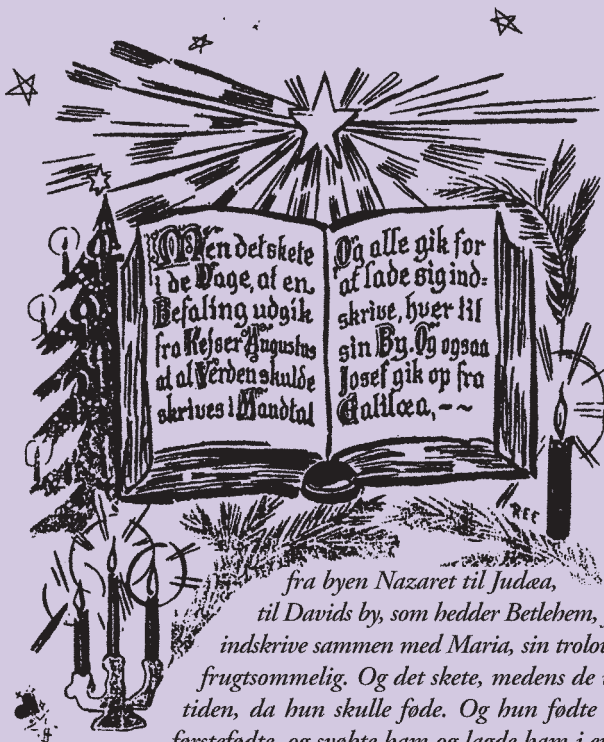 Men det skete
i de Dage, at en
Befaling udgik
fra Kejser Augustus
at al Verden skulde
skrives i Mandtal
Og alle gik for
at lade sig ind=
skrive, hver til
sin By. Og ogsaa
Josef gik op fra
Galilæa,~~
fra byen Nazaret til Judæa,
til Davids by, som hedder Betlehem,
indskrive sammen med Maria, sin
frugtsommelig. Og det skete, medens de
tiden, da hun skulle føde. Og hun fødte
førstefødte, og svøbte ham og lagde ham i